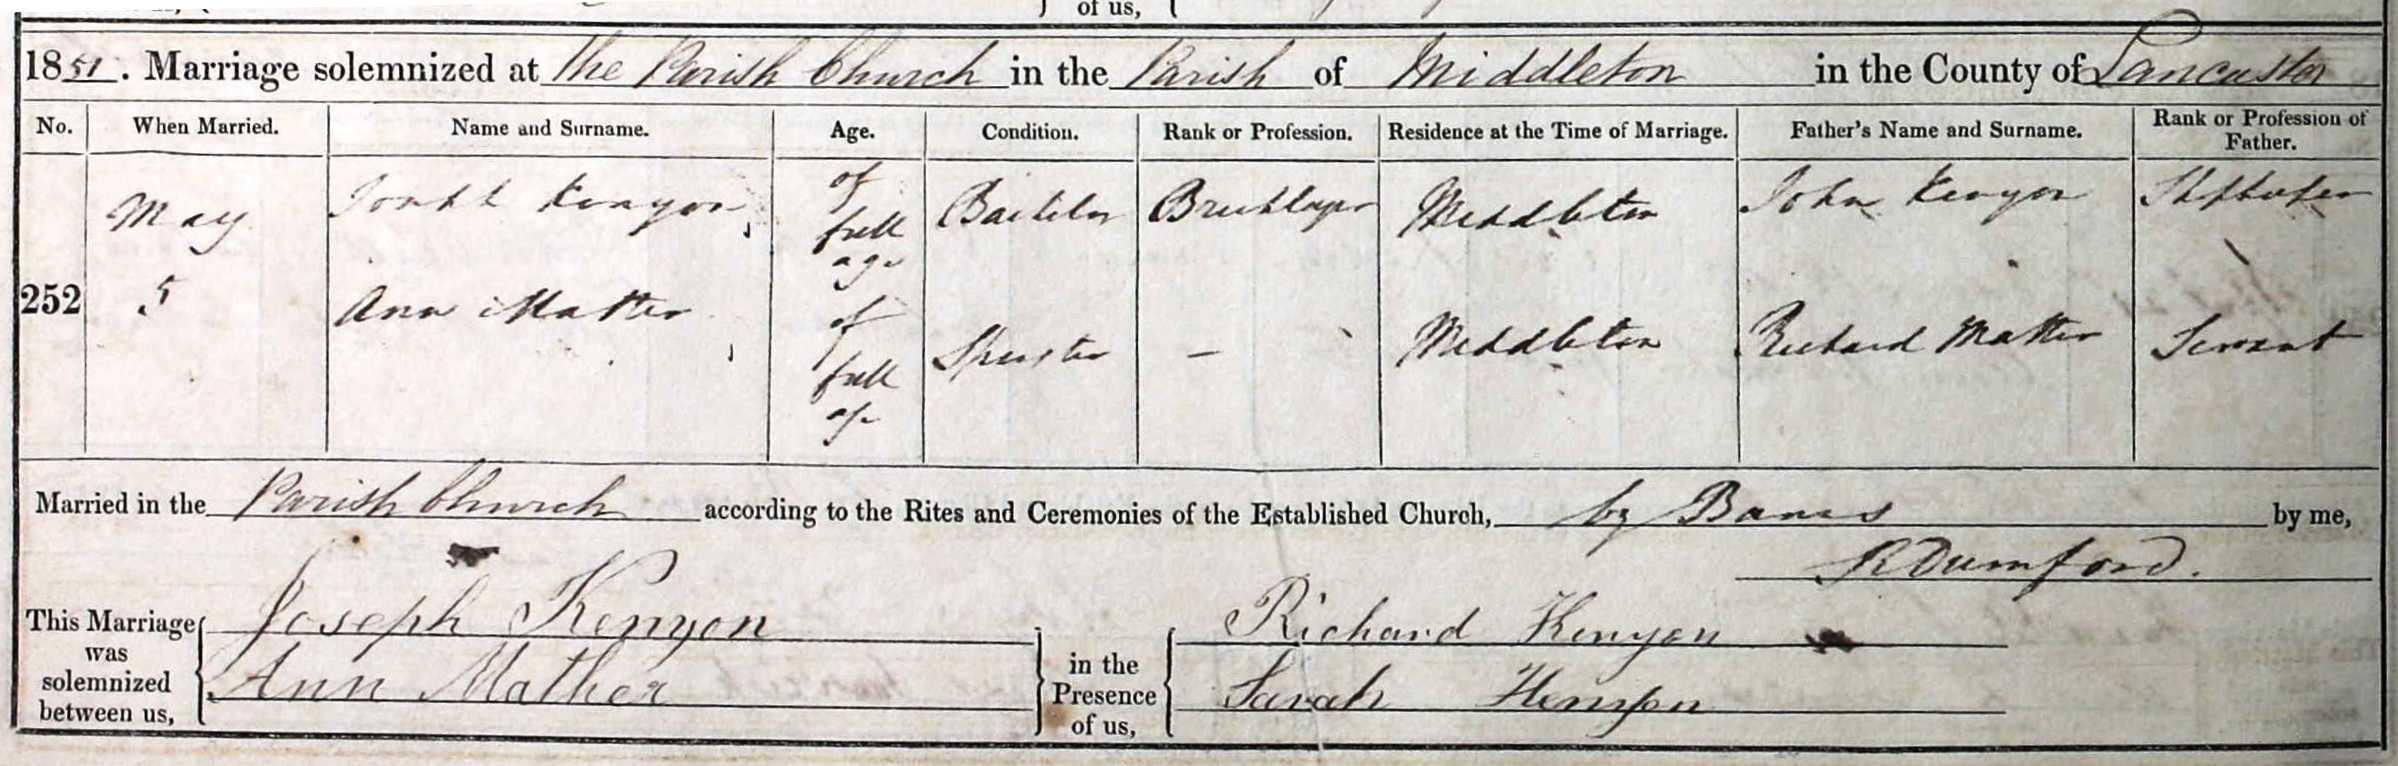 of us,
1851. Marriage solemnized at the Parish Church in the Parish of Middleton in the County of Lancaster
No. When Married. Name and Surname. Age. Condition. Rank or Profession. Residence at the Time of Marriage. Father's Name and Surname. Rank or Profession of Father.
252 May 5 Joseph Kenyon of full age Bachelor Bricklayer Middleton John Kenyon Shopkeeper
Ann Mather of full age Spinster – Middleton Richard Mather Servant
Married in the Parish Church according to the Rites and Ceremonies of the Established Church, by Banns by me,
R Durnford.
This Marriage was solemnized between us, Joseph Kenyon
Ann Mather
in the Presence of us, Richard Kenyon
Sarah